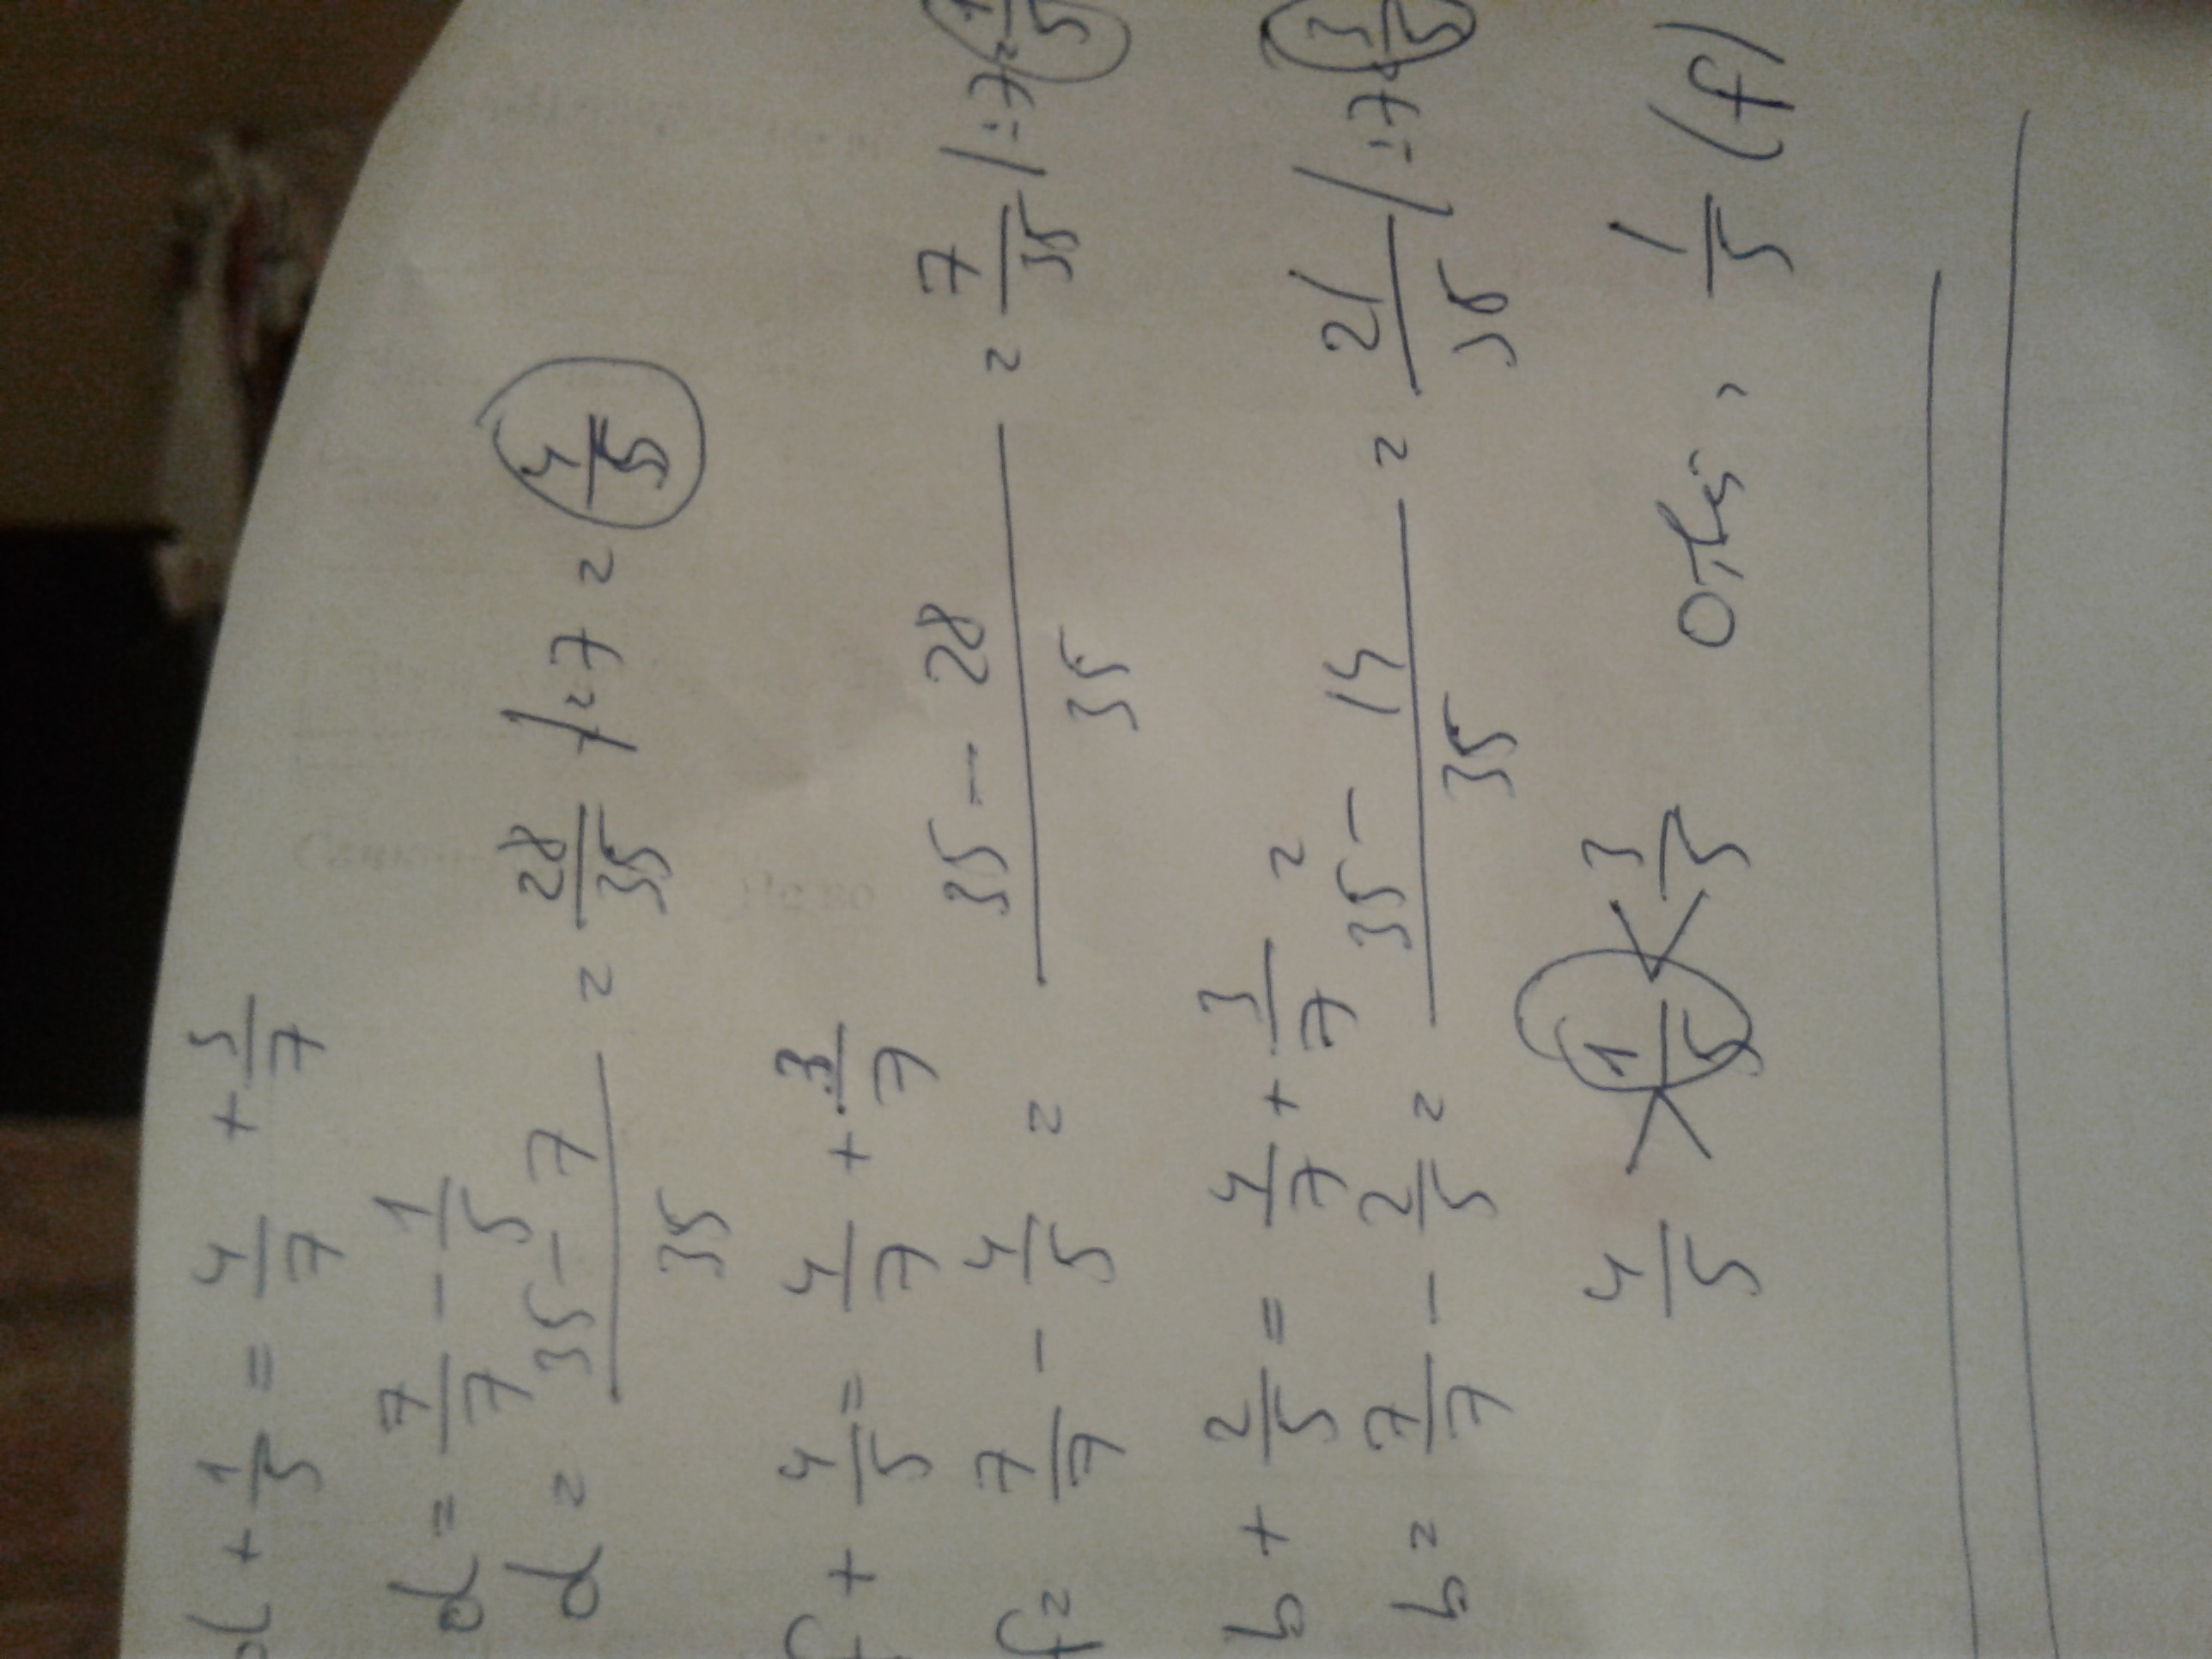 d + 1/5 = 4/7 + 3/7
d = 7/7 - 1/5
d = 35 - 7/35 = 28/35 /:7 = 4/5
f + 4/5 = 4/7 + 3/7
f = 7/7 - 4/5 = 35 - 28/35 = 7/35 /:7 = 1/5
b + 2/5 = 4/7 + 3/7 =
b = 7/7 - 2/5 = 35 - 14/35 = 21/35 /:7 = 3/5
4/5 > 1/5 < 3/5 Отв., 1/5 (f)